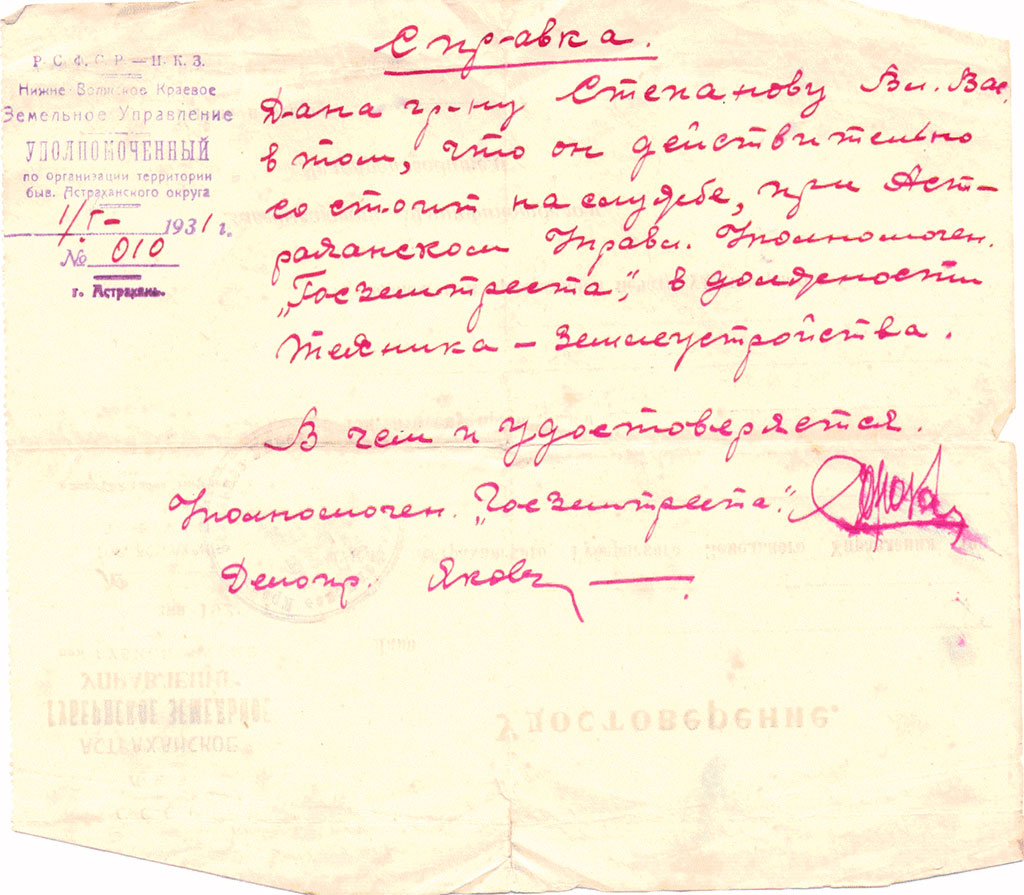 Справка.
Р.С.Ф.С.Р. — Н.К.З.
Нижне-Волжское Краевое
Земельное Управление
УПОЛНОМОЧЕННЫЙ
по организации территории
быв. Астраханского округа
1/I- 1931 г.
№ 010
г. Астрахань.
Дана гр-ну Степанову Вл. Вас.
в том, что он действительно
состоит на службе, при Аст-
раханском Управл. Уполномочен.
„Госземтреста", в должности
техника – землеустройства.
В чем и удостоверяется.
Уполномочен. „Госземтреста".
Делопр.
Удостоверение.
АСТРАХАНСКОЕ
ГУБЕРНСКОЕ ЗЕМЕЛЬНОЕ
УПРАВЛЕНИЕ